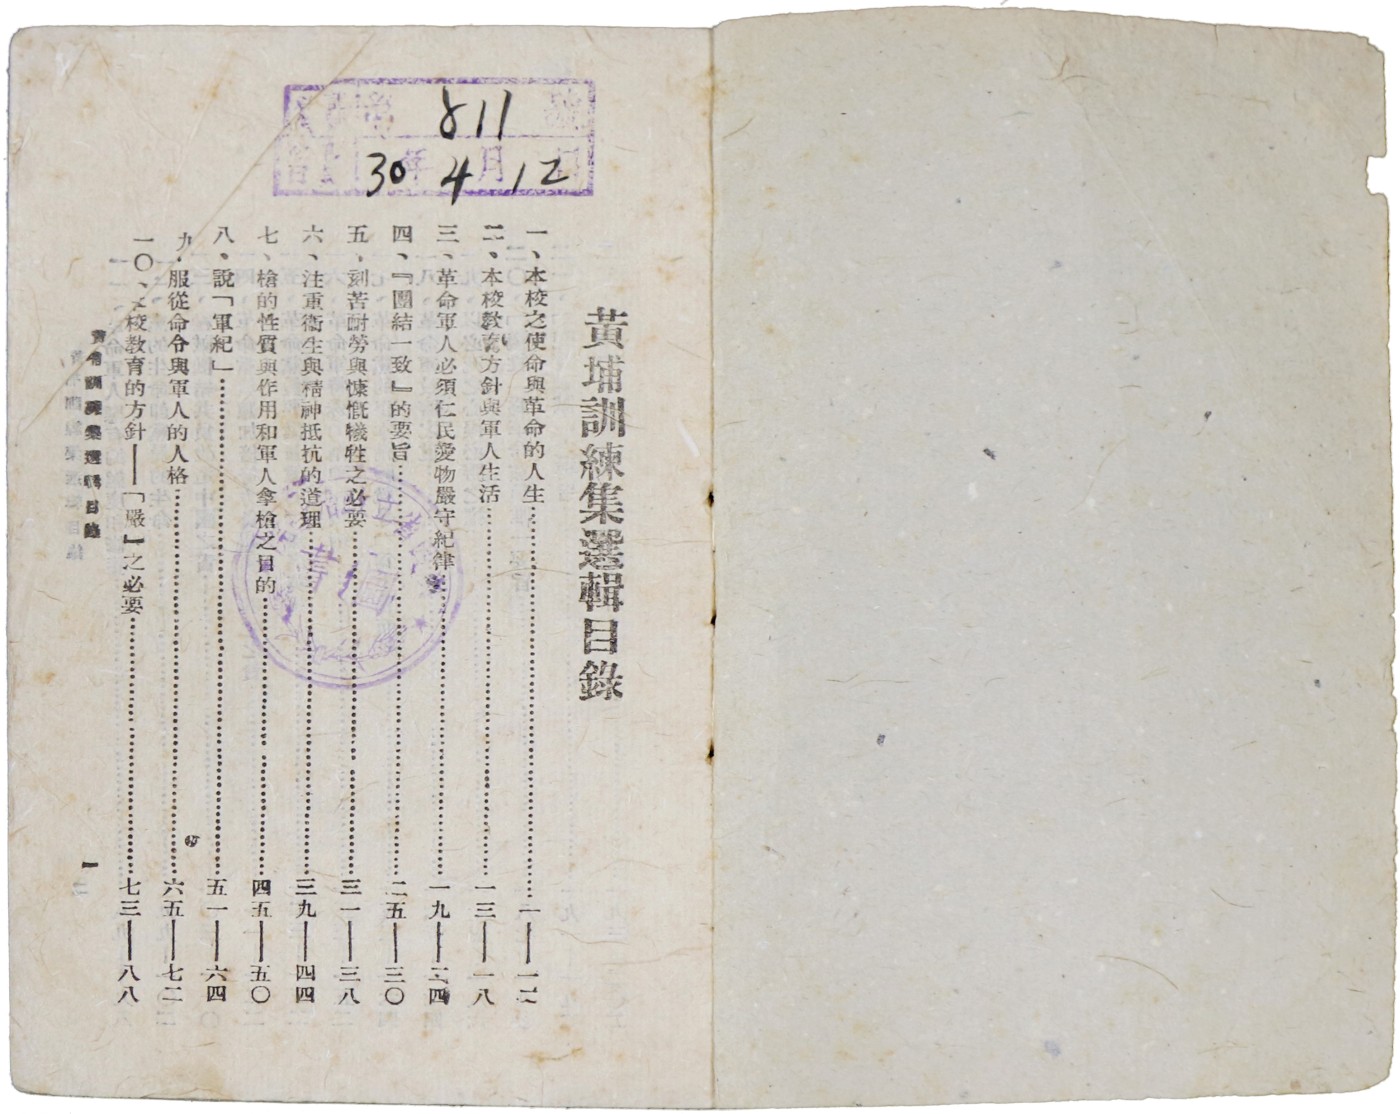 黃埔訓練集選輯目錄
一、本校之使命與革命的人生……二——一二
二、本校教育方針與軍人生活……一三——一八
三、革命軍人必須仁民愛物嚴守紀律……一九——二四
四、『團結一致』的要旨……二五——三〇
五、刻苦耐勞與慷慨犧牲之必要……三一——三八
六、注重衛生與精神抵抗的道理……三九——四四
七、槍的性質與作用和軍人拿槍之目的……四五——五〇
八、說「軍紀」……五一——六四
九、服從命令與軍人的人格……六五——七二
一〇、校教育的方針——「嚴」之必要……七三——八八
黃埔訓練集選輯目錄
一
811
30年4月12日
圖書